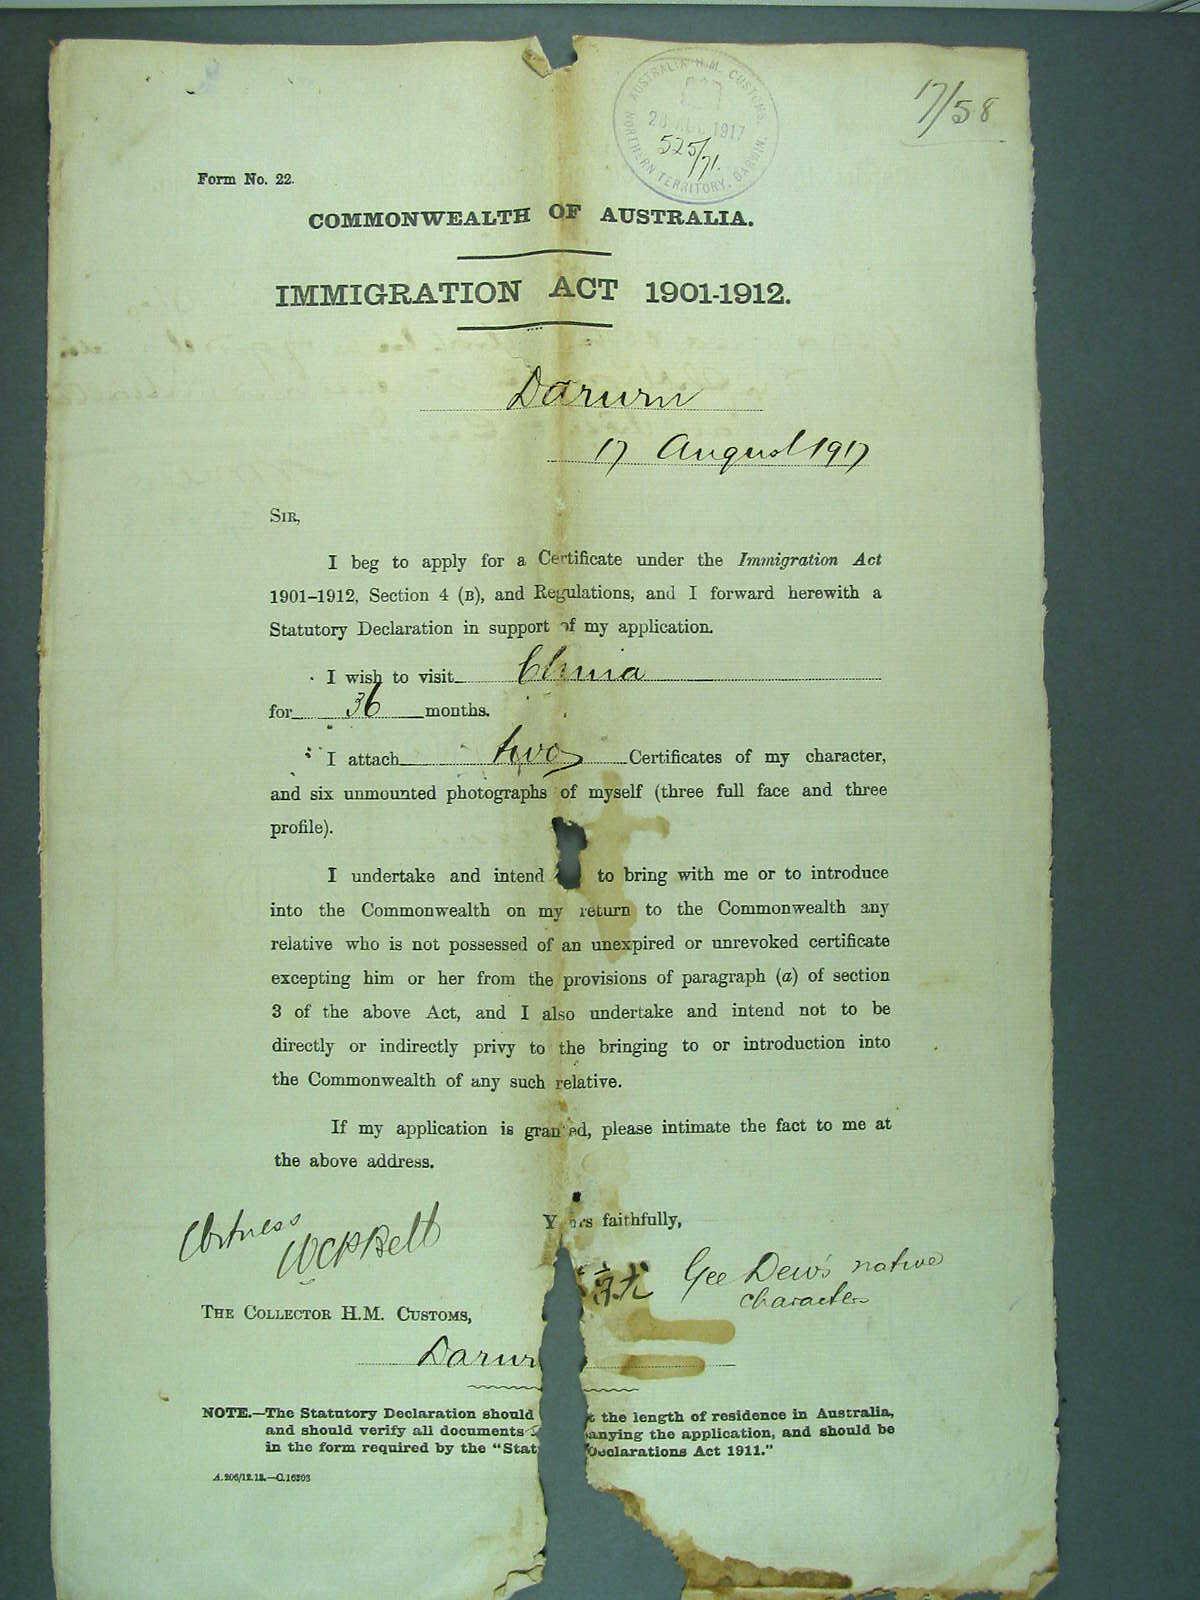 17/58
AUSTRALIA H.M. CUSTOMS.
1917
525/71.
NORTHERN TERRITORY, DARWIN.
Form No. 22.
COMMONWEALTH OF AUSTRALIA.
IMMIGRATION ACT 1901-1912.
Darwin
17 August 1917
SIR,
I beg to apply for a Certificate under the Immigration Act
1901–1912, Section 4 (B), and Regulations, and I forward herewith a
Statutory Declaration in support of my application.
I wish to visit China
for 36 months.
I attach two Certificates of my character,
and six unmounted photographs of myself (three full face and three
profile).
I undertake and intend to bring with me or to introduce
into the Commonwealth on my return to the Commonwealth any
relative who is not possessed of an unexpired or unrevoked certificate
excepting him or her from the provisions of paragraph (a) of section
3 of the above Act, and I also undertake and intend not to be
directly or indirectly privy to the bringing to or introduction into
the Commonwealth of any such relative.
If my application is granted, please intimate the fact to me at
the above address.
Yours faithfully,
Witness
Gee Dew's native
character
THE COLLECTOR H.M. CUSTOMS,
Darwin
NOTE.—The Statutory Declaration should the length of residence in Australia,
and should verify all documents anying the application, and should be
in the form required by the "Stat Declarations Act 1911."
A.206/12.12.—C.16303